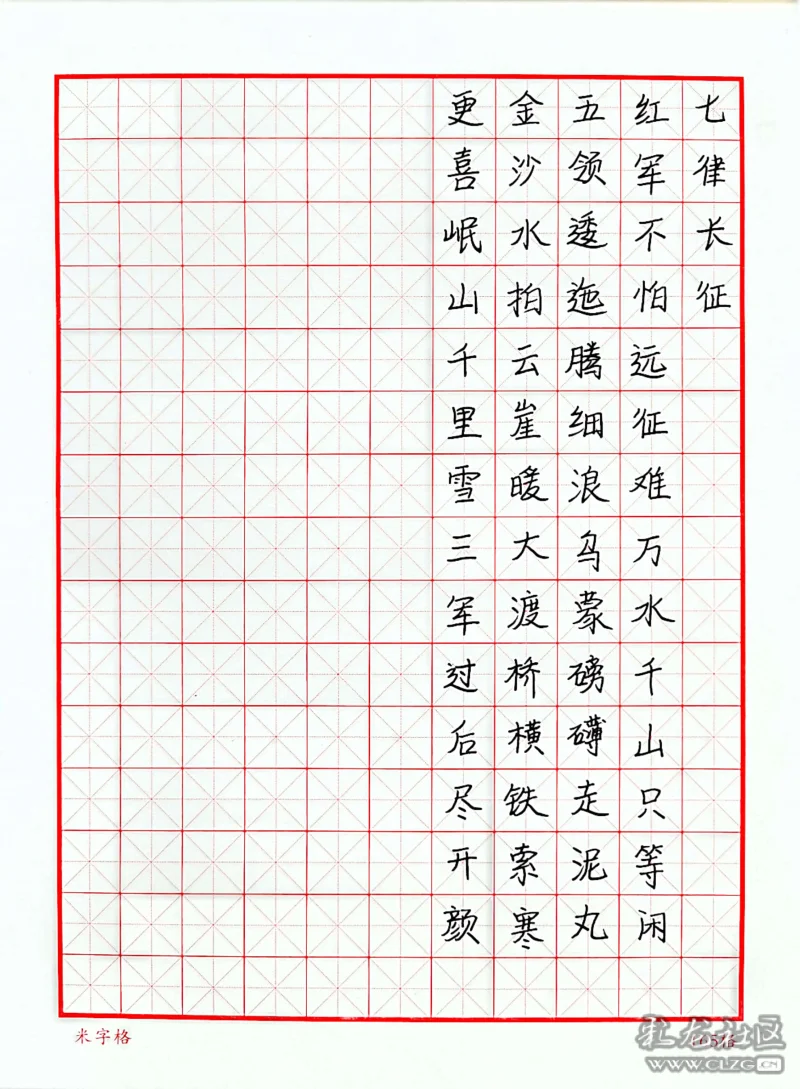 七律长征
红军不怕远征难万水千山只等闲
五领逶迤腾细浪乌蒙磅礴走泥丸
金沙水拍云崖暖大渡桥横铁索寒
更喜岷山千里雪三军过后尽开颜
米字格
社区
WWW.CLZG.CN